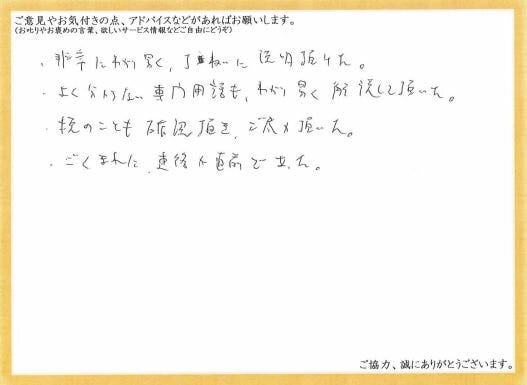 ご意見やお気付きの点、アドバイスなどがあればお願いします。
(お叱りやお褒めの言葉、欲しいサービス情報などご自由にどうぞ)
・非常にわかり易く、丁ねいに説明頂けた。
・よく分からない専門用語も、わかり易く解説して頂いた。
・税のことも確認頂き、ご尽力頂いた。
・ごくまれに、連絡が直前であった。
ご協力、誠にありがとうございます。